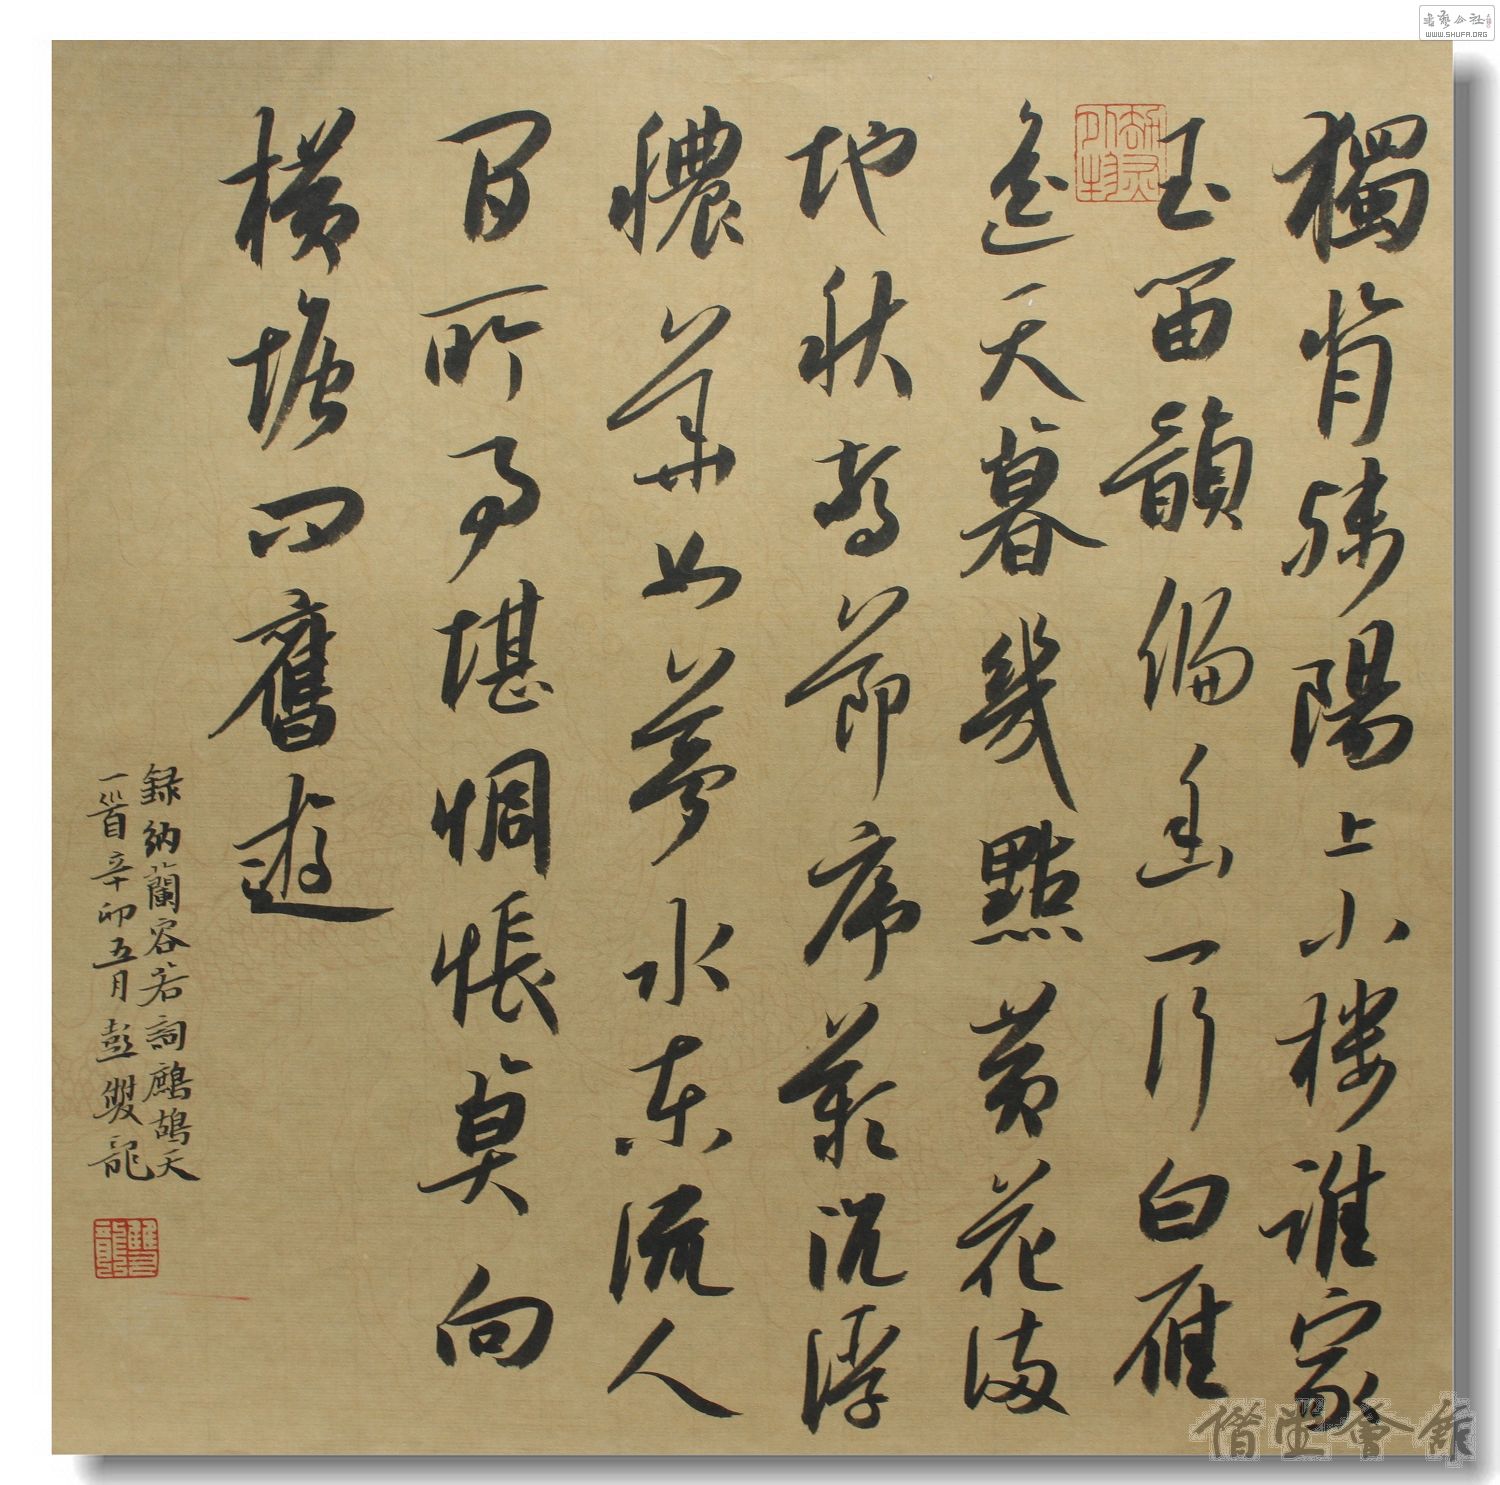 獨背殘陽上小樓誰家
玉笛韻偏幽一行白雁
遙天暮幾點黄花滿
地秋驚節序嘆沉浮
穠華如夢水東流人
間所事堪惆悵莫向
橫塘問舊遊
録納蘭容若詞鷓鴣天
一首辛卯五月彭雙龍
書藝公社
WWW.SHUFA.ORG